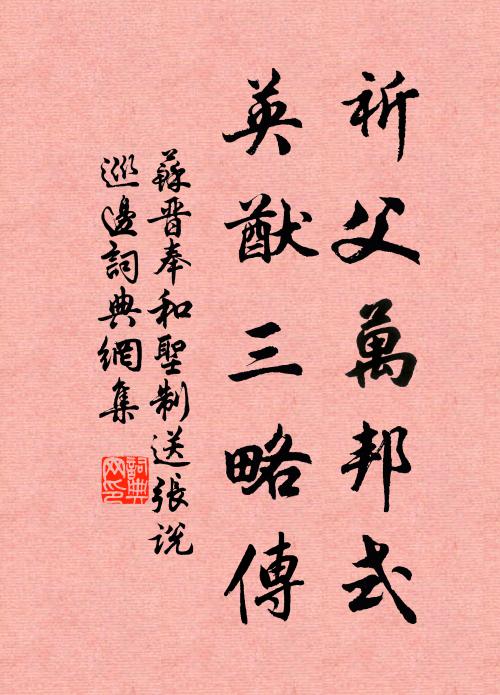 祈父萬邦式
英猷三略傳
蘇晋奉和聖制送張说
巡邊詞典網集
詞典网印